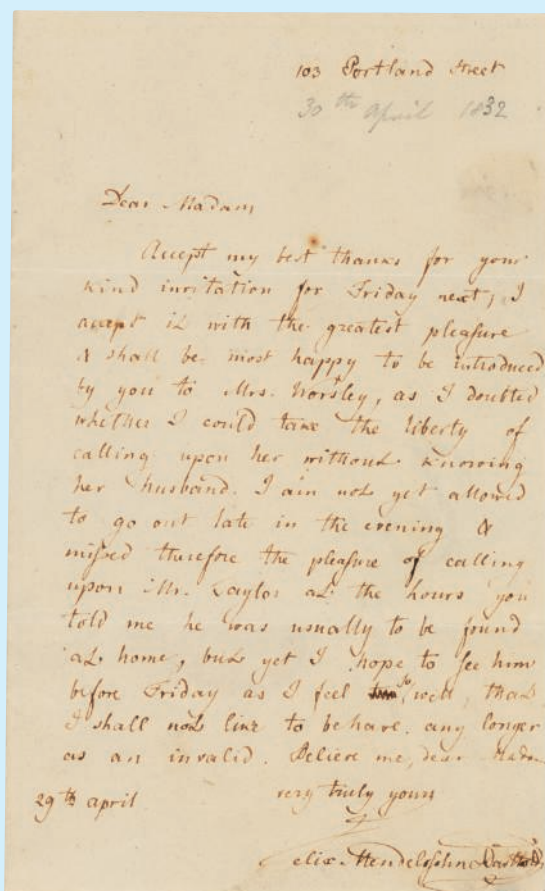 103 Portland Street
30th April 1832
Dear Madam
Accept my best thanks for your
kind invitation for Friday next, I
accept it with the greatest pleasure
& shall be most happy to be introduced
by you to Mrs. Horsley, as I doubted
whether I could take the liberty of
calling upon her without knowing
her husband. I am not yet allowed
to go out late in the evening &
missed therefore the pleasure of calling
upon Mr. Taylor at the hours you
told me he was usually to be found
at home, but yet I hope to see him
before Friday as I feel so well, that
I shall not like to behave any longer
as an invalid. Believe me, dear Madam
very truly yours
29th april
Felix Mendelssohn Bartholdy